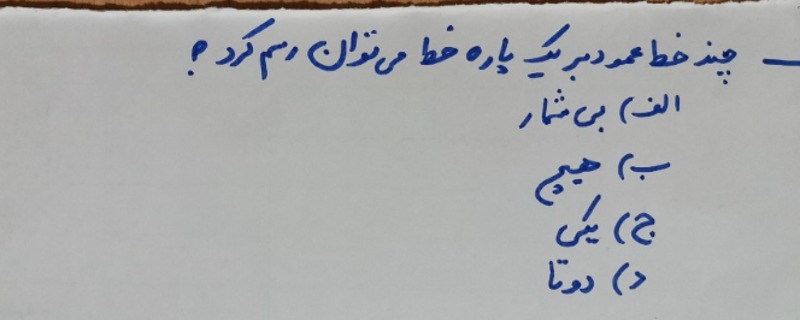 - چند خط عمود بر یک پاره خط می توان رسم کرد ؟
الف) بی شمار
ب) هیچ
ج) یکی
د) دوتا